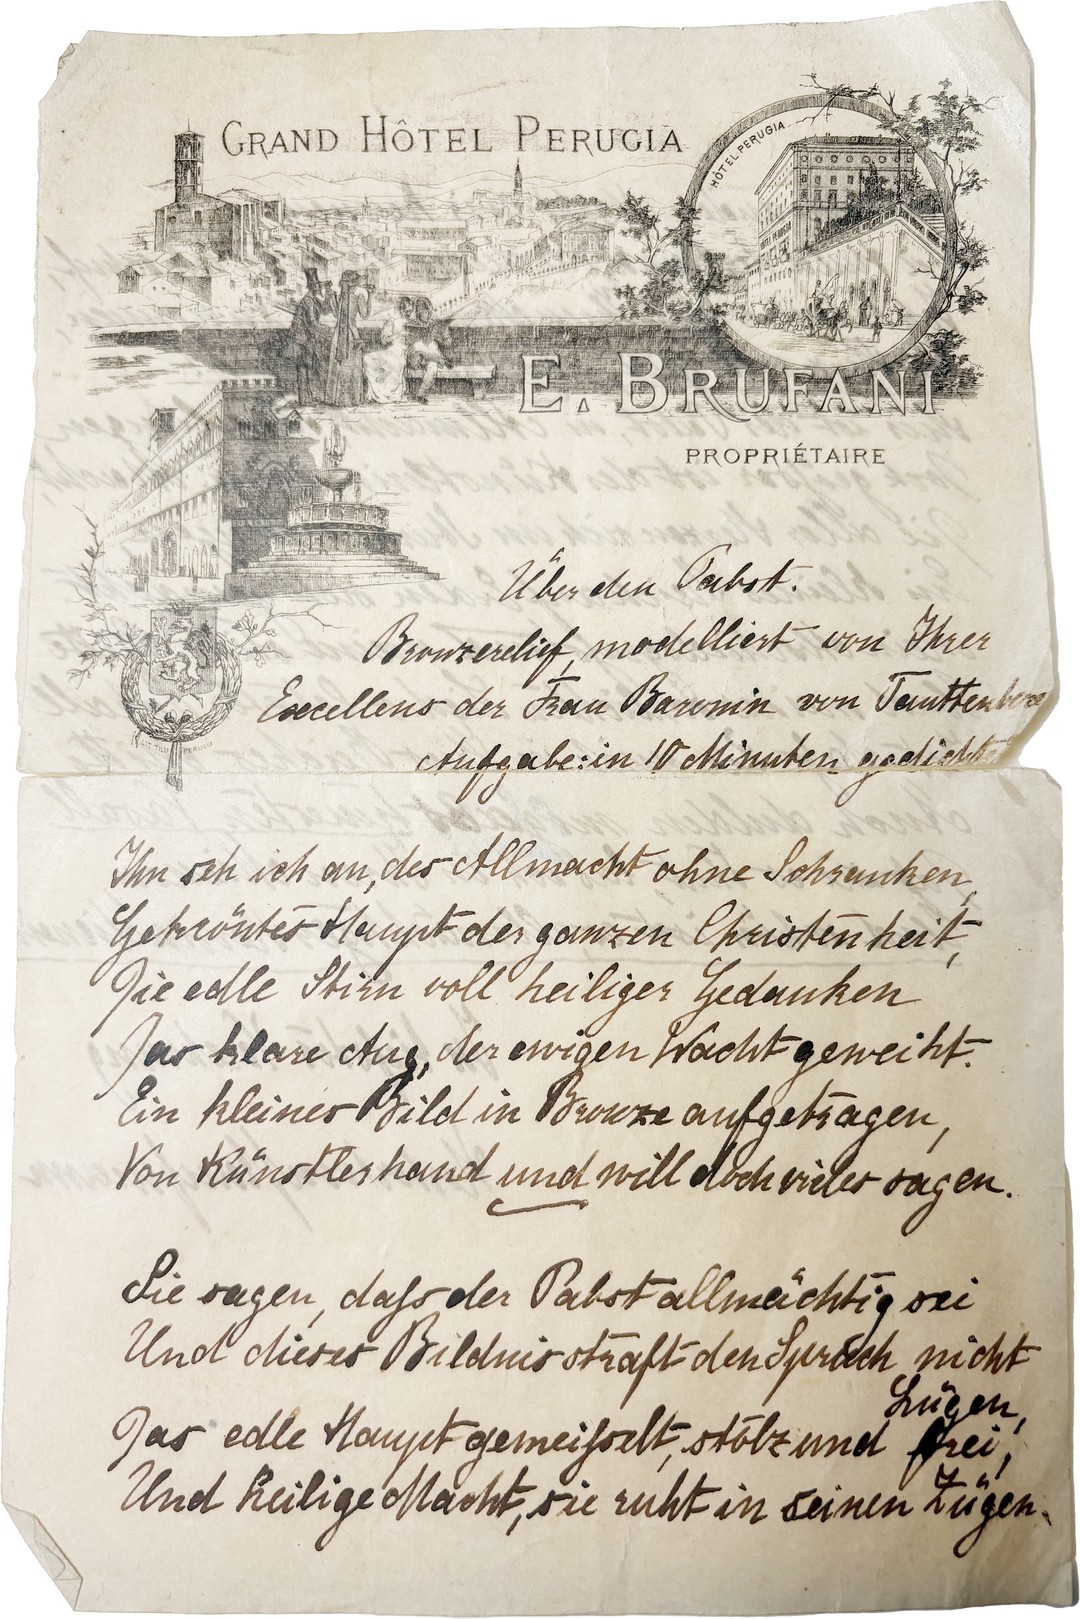 GRAND HÔTEL PERUGIA
HÔTEL PERUGIA
E. BRUFANI
PROPRIÉTAIRE
Über den Pabst.
Bronzerelief, modelliert von Ihrer
Excellens der Frau Baronin von
Aufgabe: in 10 Minuten gedichtet
Ihn seh ich an, der Allmacht ohne Schranken,
Gekröntes Haupt der ganzen Christenheit,
Die edle Stirn voll heiliger Gedanken
Das klare Aug, der ewigen Wacht geweiht.
Ein kleines Bild in Bronze aufgetragen,
Von Künstlerhand und will doch vieles sagen.
Sie sagen, daß der Pabst allmächtig sei
Und dieses Bildnis straft den Spruch nicht
Lügen,
Das edle Haupt gemeißelt, stolz und frei,
Und heilige Macht, sie ruht in seinen Zügen.